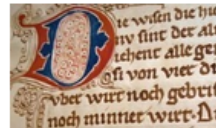 ie wisen die hi
iv sint der al
iehent alle ge
si von vier di
vber wirt noch gebrit
noch minner wirt. D